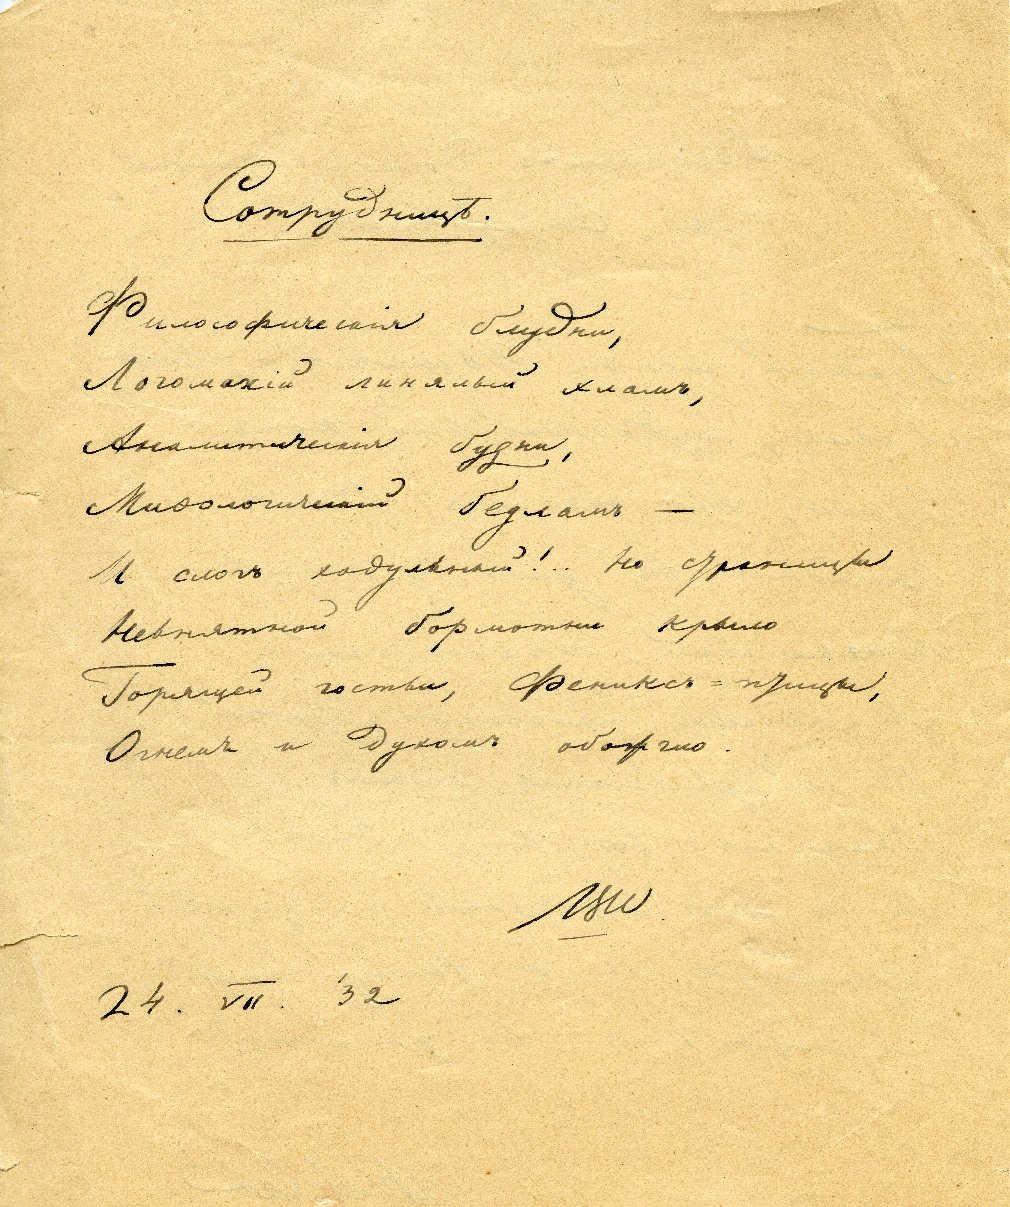 Сотрудницѣ.
Философическія блудни,
Логомахій линялый хламъ,
Аналитическія будни,
Миѳологическій бедламъ —
И слогъ ходульный!.. Но страницы
Невнятной бормотни крыло
Горящей гостьи, Фениксъ-птицы,
Огнемъ и Духомъ обожгло.
24. VII. '32